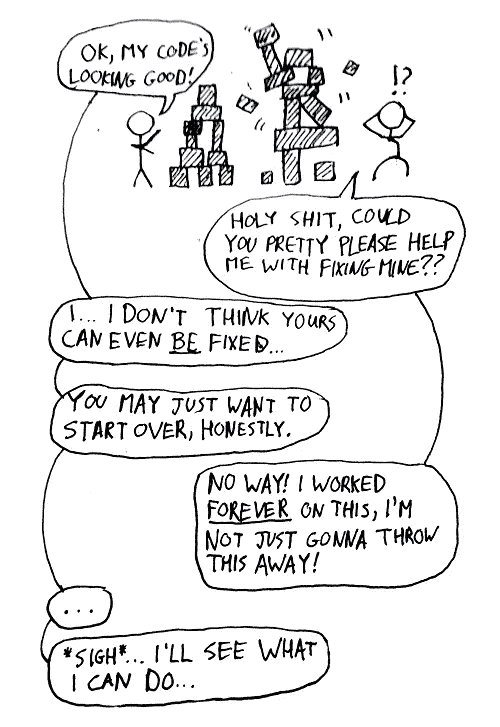 OK, MY CODE'S
LOOKING GOOD!
!?
HOLY SHIT, COULD
YOU PRETTY PLEASE HELP
ME WITH FIXING MINE??
I... I DON'T THINK YOURS
CAN EVEN BE FIXED...
YOU MAY JUST WANT TO
START OVER, HONESTLY.
NO WAY! I WORKED
FOREVER ON THIS, I'M
NOT JUST GONNA THROW
THIS AWAY!
...
*SIGH*... I'LL SEE WHAT
I CAN DO...